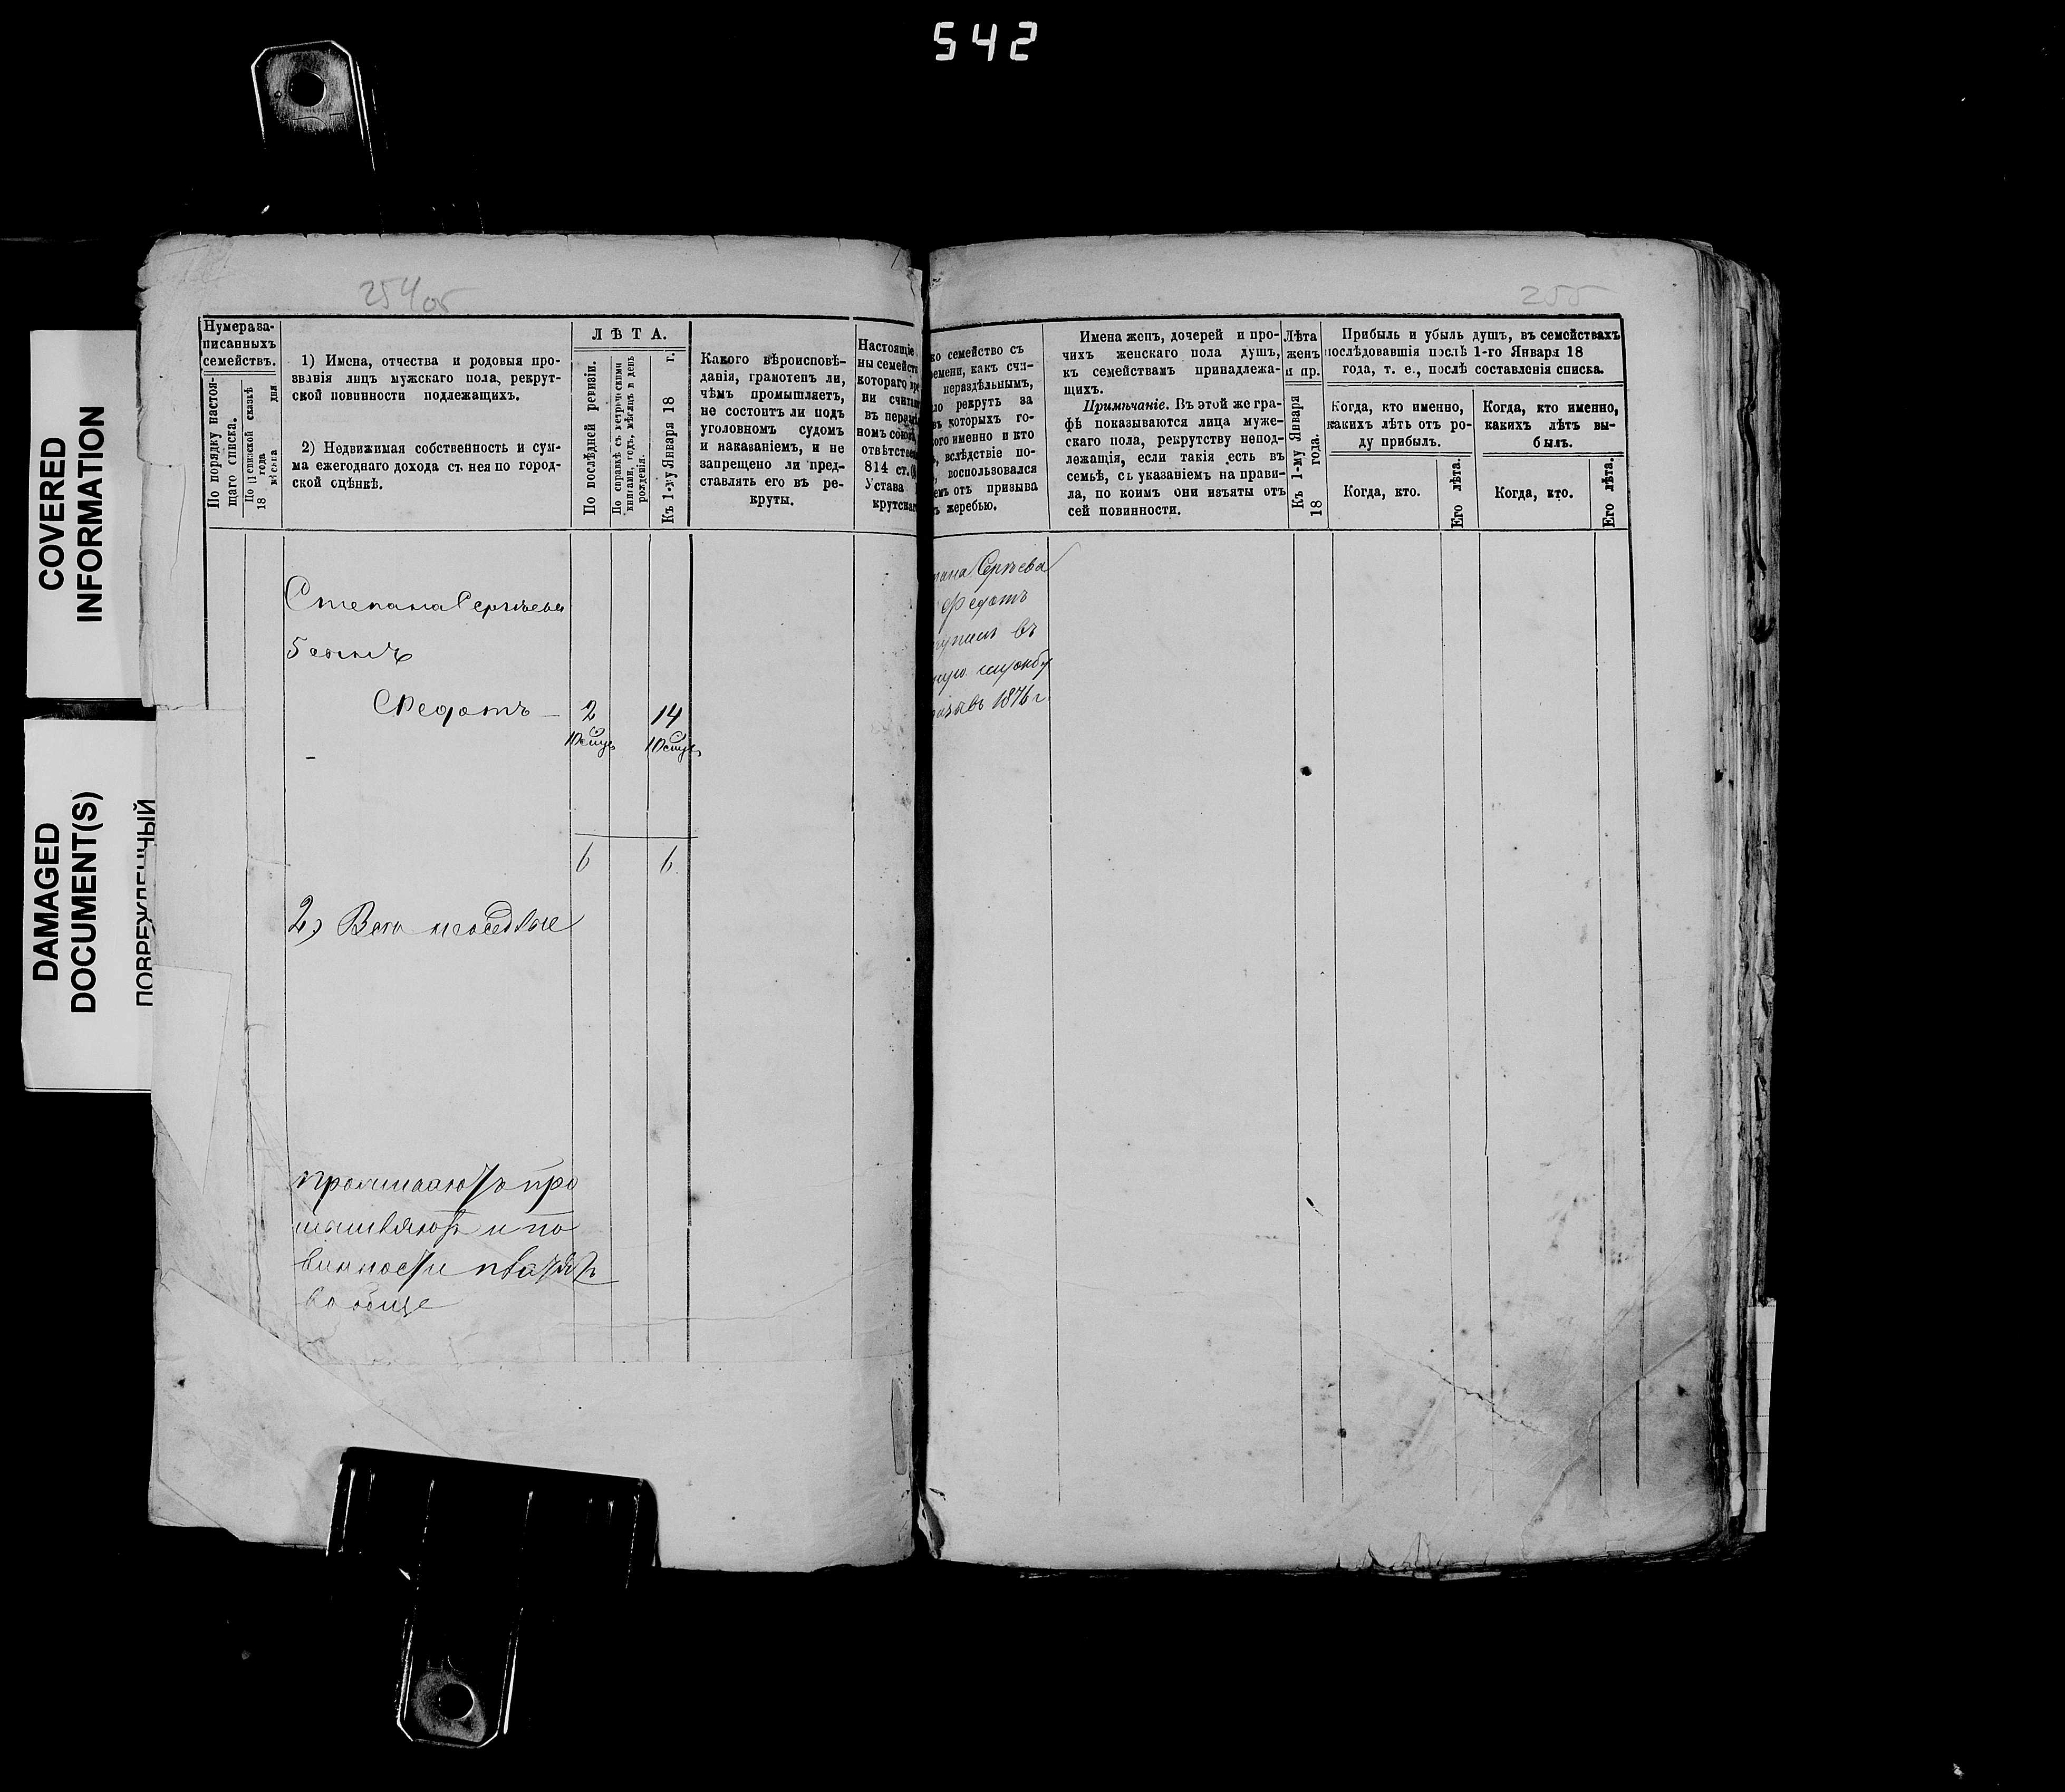 542
COVERED
INFORMATION
DAMAGED
DOCUMENT(S)
ПОВРЕЖДЕННЫЙ
254об
Нумера за-
писанныхъ
семействъ.
По порядку настоя-
щаго списка.
По ревизской сказкѣ
18 года
мѣсяца дня
1) Имена, отчества и родовыя про-
званія лицъ мужскаго пола, рекрут-
ской повинности подлежащихъ.
2) Недвижимая собственность и сум-
ма ежегоднаго дохода съ нея по город-
ской оцѣнкѣ.
ЛѢТА.
По послѣдней ревизіи.
По справкѣ съ метрическими
книгами, годъ, мѣсяцъ и день
рожденія.
Къ 1-му Января 18 г.
Какого вѣроисповѣ-
данія, грамотенъ ли,
чѣмъ промышляетъ,
не состоитъ ли подъ
уголовномъ судомъ
и наказаніемъ, и не
запрещено ли пред-
ставлять его въ ре-
круты.
Настоящіе
ны семейств
котораго вре
ни считаю
въ перед
номъ
отвѣтств
814 ст.
Устава
крутскаг
Степана Сергѣева
5 сынъ
Федотъ 2 14
6 6
2) Всѣ неоседлые
винности платятъ
вообще
255
ко семейство съ
ремени, какъ счи-
нераздѣльнымъ,
ло рекрутъ за
въ которыхъ го-
кого именно и кто
, вслѣдствіе по-
, воспользовался
емъ отъ призыва
ъ жеребью.
Имена женъ, дочерей и про-
чихъ женскаго пола душъ,
къ семействамъ принадлежа-
щихъ.
Примѣчаніе. Въ этой же гра-
фѣ показываются лица муже-
скаго пола, рекрутству непод-
лежащія, если такія есть въ
семьѣ, съ указаніемъ на прави-
ла, по коимъ они изъяты отъ
сей повинности.
Лѣта
женъ
и пр.
Къ 1-му Января
18 года.
Прибыль и убыль душъ, въ семействахъ
послѣдовавшія послѣ 1-го Января 18
года, т. е., послѣ составленія списка.
Когда, кто именно,
какихъ лѣтъ отъ ро-
ду прибылъ.
Когда, кто.
Его лѣта.
Когда, кто именно,
какихъ лѣтъ вы-
былъ.
Когда, кто.
Его лѣта.
пана Сергѣева
Федотъ
тупилъ въ
ную службу
въ 1876 г.